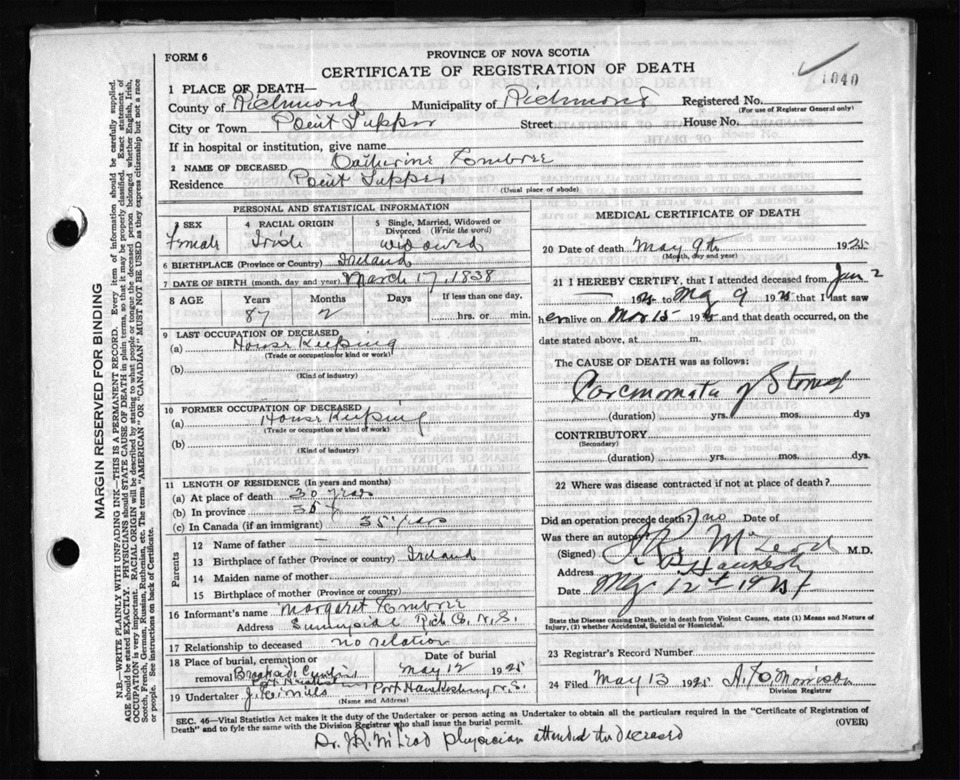 FORM 6
PROVINCE OF NOVA SCOTIA
CERTIFICATE OF REGISTRATION OF DEATH
1040
1 PLACE OF DEATH—
County of Richmond Municipality of Richmond Registered No.
(For use of Registrar General only)
City or Town Point Tupper Street House No.
If in hospital or institution, give name
2 NAME OF DECEASED Catherine
Residence Point Tupper
(Usual place of abode)
PERSONAL AND STATISTICAL INFORMATION
3 SEX 4 RACIAL ORIGIN 5 Single, Married, Widowed or Divorced (Write the word)
Female Irish widowed
6 BIRTHPLACE (Province or Country) Ireland
7 DATE OF BIRTH (month, day and year) March 17, 1838
8 AGE Years Months Days If less than one day,
87 2 hrs. or min.
9 LAST OCCUPATION OF DECEASED
(a) House Keeping
(Trade or occupation or kind of work)
(b)
(Kind of industry)
10 FORMER OCCUPATION OF DECEASED
(a) House Keeping
(Trade or occupation or kind of work)
(b)
(Kind of industry)
11 LENGTH OF RESIDENCE (In years and months)
(a) At place of death 30 years
(b) In province 35
(c) In Canada (if an immigrant) 35 years
Parents
12 Name of father —
13 Birthplace of father (Province or country) Ireland
14 Maiden name of mother
15 Birthplace of mother (Province or country)
16 Informant's name Margaret
Address Sunnyside Rich Co. N.S.
17 Relationship to deceased no relation
18 Place of burial, cremation or removal Date of burial
May 12 1925
19 Undertaker Port Hawkesbury N.S.
(Name and Address)
MEDICAL CERTIFICATE OF DEATH
20 Date of death May 9th 1925
(Month, day and year)
21 I HEREBY CERTIFY, that I attended deceased from Jan 2
192 to May 9 192 that I last saw
her alive on 15 192 and that death occurred, on the
date stated above, at m.
The CAUSE OF DEATH was as follows:
Carcinomata of Stomach
(duration) yrs. mos. dys
CONTRIBUTORY
(Secondary)
(duration) yrs. mos. dys.
22 Where was disease contracted if not at place of death?
Did an operation precede death? no Date of
Was there an autopsy
(Signed) J. R. McLeod M.D.
Address P. Hawkesb
Date May 12th 192
State the Disease causing Death, or in death from Violent Causes, state (1) Means and Nature of
Injury, (2) whether Accidental, Suicidal or Homicidal.
23 Registrar's Record Number
24 Filed May 13 1925 Morrison
Division Registrar
SEC. 46—Vital Statistics Act makes it the duty of the Undertaker or person acting as Undertaker to obtain all the particulars required in the "Certificate of Registration of
Death" and to fyle the same with the Division Registrar who shall issue the burial permit. (OVER)
Dr. J.R. McLeod physician attended the deceased
MARGIN RESERVED FOR BINDING
N.B.—WRITE PLAINLY WITH UNFADING INK.—THIS IS A PERMANENT RECORD. Every item of information should be carefully supplied.
AGE should be stated EXACTLY. PHYSICIANS should STATE CAUSE OF DEATH in plain terms, so that it may be properly classified. Exact statement of
OCCUPATION is very important. RACIAL ORIGIN will be described by stating to what people or tongue the deceased person belonged, whether English, Irish,
Scotch, French, German, Russian, Ruthenian, etc. The terms "AMERICAN" OR "CANADIAN" MUST NOT BE USED as they express citizenship but not a race
or people. See instructions on back of Certificate.